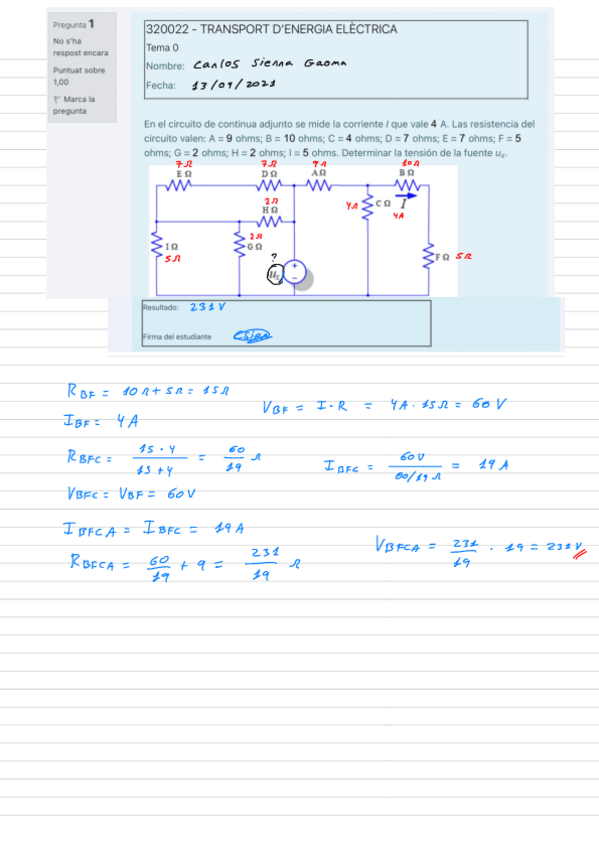 Pregunta 1
No s'ha
respost encara
Puntuat sobre
1,00
Marca la
pregunta
320022 - TRANSPORT D'ENERGIA ELÈCTRICA
Tema 0
Nombre: Carlos Sienna Gaoma
Fecha: 13/09/2021
En el circuito de continua adjunto se mide la corriente I que vale 4 A. Las resistencia del
circuito valen: A = 9 ohms; B = 10 ohms; C = 4 ohms; D = 7 ohms; E = 7 ohms; F = 5
ohms; G = 2 ohms; H = 2 ohms; I = 5 ohms. Determinar la tensión de la fuente uₓ.
7Ω 7Ω 9Ω 10Ω
E Ω D Ω A Ω B Ω
2Ω
H Ω
4Ω C Ω I
4A
2Ω
I Ω G Ω
5Ω
?
F Ω 5Ω
uₓ
+
−
Resultado: 231 V
Firma del estudiante
R BF = 10Ω + 5Ω = 15Ω
V BF = I · R = 4A · 15Ω = 60 V
I BF = 4A
R BFC = 15 · 4 / 15 + 4 = 60 / 19 Ω
I BFC = 60V / 60/19 Ω = 19 A
V BFC = V BF = 60V
I BFCA = I BFC = 19A
R BFCA = 60 / 19 + 9 = 231 / 19 Ω
V BFCA = 231 / 19 · 19 = 231V